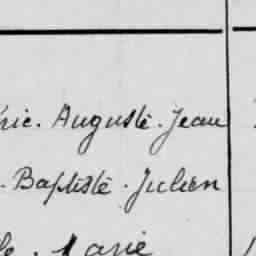 ric. Auguste. Jean
. Baptiste. Julien
le. Marie